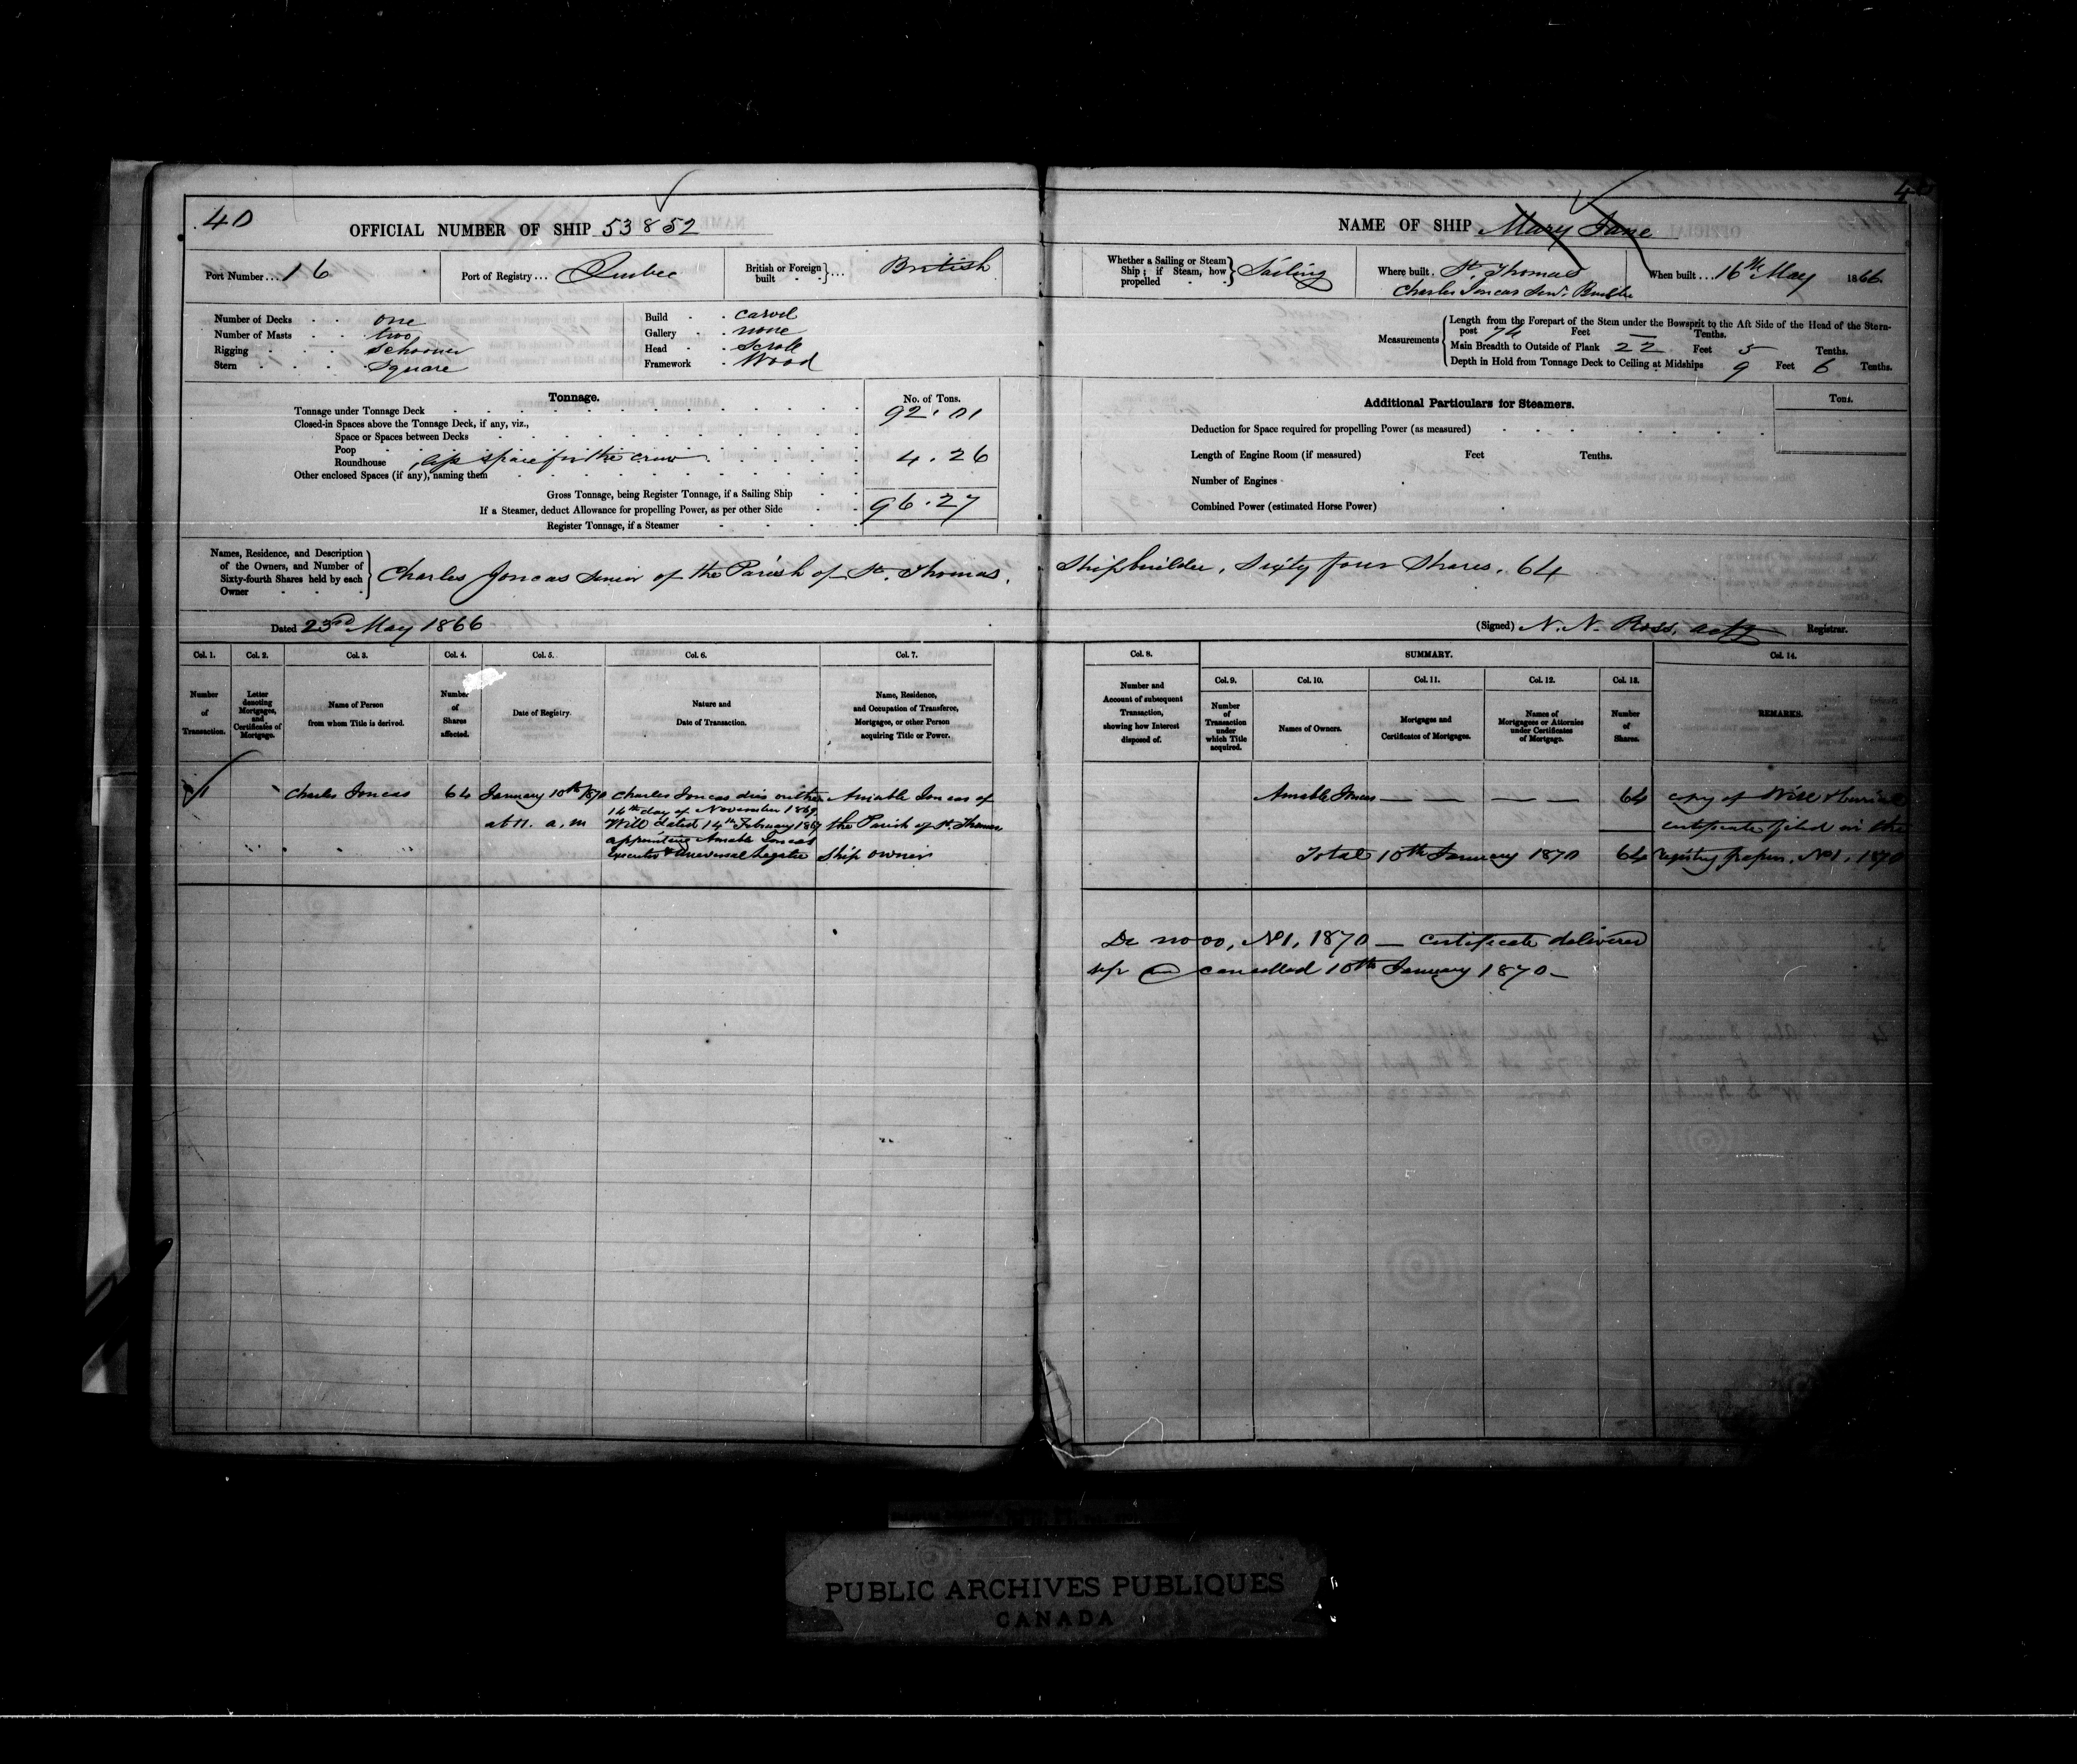 40
OFFICIAL NUMBER OF SHIP 53852
Port Number... 16
Port of Registry... Quebec
British or Foreign built ... British
Number of Decks one
Number of Masts two
Rigging schooner
Stern square
Build carvel
Gallery none
Head scroll
Framework Wood
Tonnage.
No. of Tons.
Tonnage under Tonnage Deck 92.01
Closed-in Spaces above the Tonnage Deck, if any, viz.,
Space or Spaces between Decks
Poop
Roundhouse space for the crew 4.26
Other enclosed Spaces (if any), naming them
Gross Tonnage, being Register Tonnage, if a Sailing Ship
If a Steamer, deduct Allowance for propelling Power, as per other Side 96.27
Register Tonnage, if a Steamer
NAME OF SHIP Mary Jane
Whether a Sailing or Steam Ship; if Steam, how propelled Sailing
Where built. St. Thomas
Charles Joncas Senr. Builder
When built... 16th May 1866.
Measurements
Length from the Forepart of the Stem under the Bowsprit to the Aft Side of the Head of the Stern-
post 74 Feet — Tenths.
Main Breadth to Outside of Plank 22 Feet 5 Tenths.
Depth in Hold from Tonnage Deck to Ceiling at Midships 9 Feet 6 Tenths.
Additional Particulars for Steamers.
Tons.
Deduction for Space required for propelling Power (as measured)
Length of Engine Room (if measured) Feet Tenths.
Number of Engines
Combined Power (estimated Horse Power)
Names, Residence, and Description
of the Owners, and Number of
Sixty-fourth Shares held by each
Owner
Charles Joncas Senior of the Parish of St. Thomas, Shipbuilder, Sixty four Shares. 64
Dated 23rd May 1866
(Signed) N. N. Ross, actg Registrar.
Col. 1. Col. 2. Col. 3. Col. 4. Col. 5. Col. 6. Col. 7.
Number of Transaction.
Letter denoting Mortgages, and Certificates of Mortgage.
Name of Person from whom Title is derived.
Number of Shares affected.
Date of Registry.
Nature and Date of Transaction.
Name, Residence, and Occupation of Transferee, Mortgagee, or other Person acquiring Title or Power.
Col. 8. SUMMARY. Col. 14.
Col. 9. Col. 10. Col. 11. Col. 12. Col. 13.
Number and Account of subsequent Transaction, showing how Interest disposed of.
Number of Transaction under which Title acquired.
Names of Owners.
Mortgages and Certificates of Mortgages.
Names of Mortgagees or Attornies under Certificates of Mortgage.
Number of Shares.
REMARKS.
1
Charles Joncas
64
January 10th 1870
at 11. a.m
Charles Joncas died on the
14th day of November 1869,
Will dated 14th February 1867
appointing Amable Joncas
executor & Universal Legatee
Amable Joncas of
the Parish of St. Thomas,
Ship owner
Amable Joncas — — — — 64
Total 10th January 1870 64
copy of Will & burial
certificate filed in the
registry papers. No 1, 1870
No 1, 1870 — certificate delivered
up and cancelled 10th January 1870 —
PUBLIC ARCHIVES PUBLIQUES
CANADA